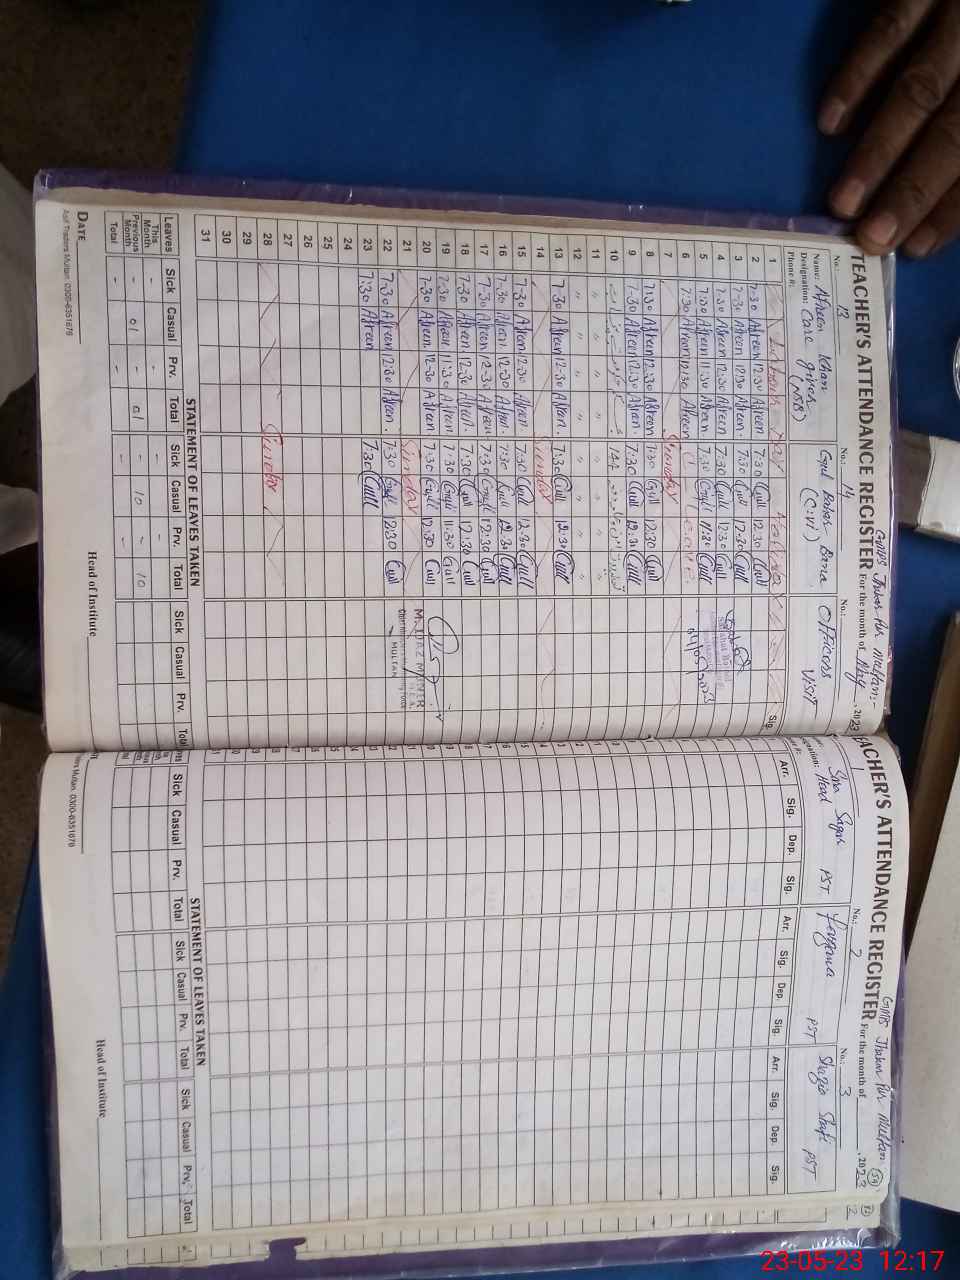 TEACHER'S ATTENDANCE REGISTER
GMPS Jhakar Pur Multan:-
For the month of May, 2023
No.: 13
Name: Afreen Khan
Designation: Care giver
(NSB)
Phone #:
No.: 14
Gul
(C.W)
No.:
Officers
Visit
Sig.
1
2 7:30 Afreen 12:30 Afreen 7:30 Gull 12:30 Gull
3 7:30 Afreen 12:30 Afreen. 7:30 Gull 12:30 Gull
4 7:30 Afreen 12:30 Afreen 7:30 Gull 12:30 Gull
5 7:30 Afreen 11:30 Afreen. 7:30 Gull 11:30 Gull
6 7:30 Afreen 12:30 Afreen Leave
7 Sunday
8 7:30 Afreen 12:30 Afreen 7:30 Gull 12:30 Gull
9 7:30 Afreen 12:30 Afreen. 7:30 Gull 12:30 Gull
10
11 " " " " " " "
12 " " " " " " "
13 7:30 Afreen 12:30 Afreen. 7:30 Gull 12:30 Gull
14 Sunday
15 7:30 Afreen 12:30 Afreen 7:30 Gull 12:30 Gull
16 7:30 Afreen. 12:30 Afreen. 7:30 Gull 12:30 Gull
17 7:30 Afreen 12:30 Afreen 7:30 Gull 12:30 Gull
18 7:30 Afreen. 12:30 Afreen. 7:30 Gull 12:30 Gull
19 7:30 Afreen 11:30 Afreen 7:30 Gull 11:30 Gull
20 7:30 Afreen. 12:30 Afreen 7:30 Gull 12:30 Gull
21 Sunday
22 7:30 Afreen 12:30 Afreen. 7:30 Gull 12:30 Gull
23 7:30 Afreen 7:30 Gull
24
25
26
27
28 Sunday
29
30
31
MULTAN
STATEMENT OF LEAVES TAKEN
Leaves Sick Casual Prv. Total Sick Casual Prv. Total Sick Casual Prv. Total
This Month - - - -
Previous Month - 01 - 01 - 10 - 10
Total - - - -
DATE
Head of Institute
Asif Traders Multan. 0300-6351678
TEACHER'S ATTENDANCE REGISTER
GMPS Jhakar Pur Multan
For the month of , 2023
No.: 1
Head PST
No.: 2
PST
No.: 3
Shazia Shafi PST
Arr. Sig. Dep. Sig. Arr. Sig. Dep. Sig. Arr. Sig. Dep. Sig.
STATEMENT OF LEAVES TAKEN
Sick Casual Prv. Total Sick Casual Prv. Total Sick Casual Prv. Total
Head of Institute
Multan. 0300-6351678
23-05-23 12:17